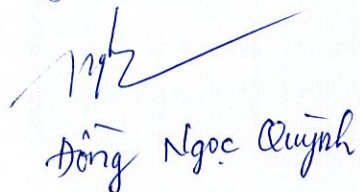 Đồng Ngọc Quỳnh